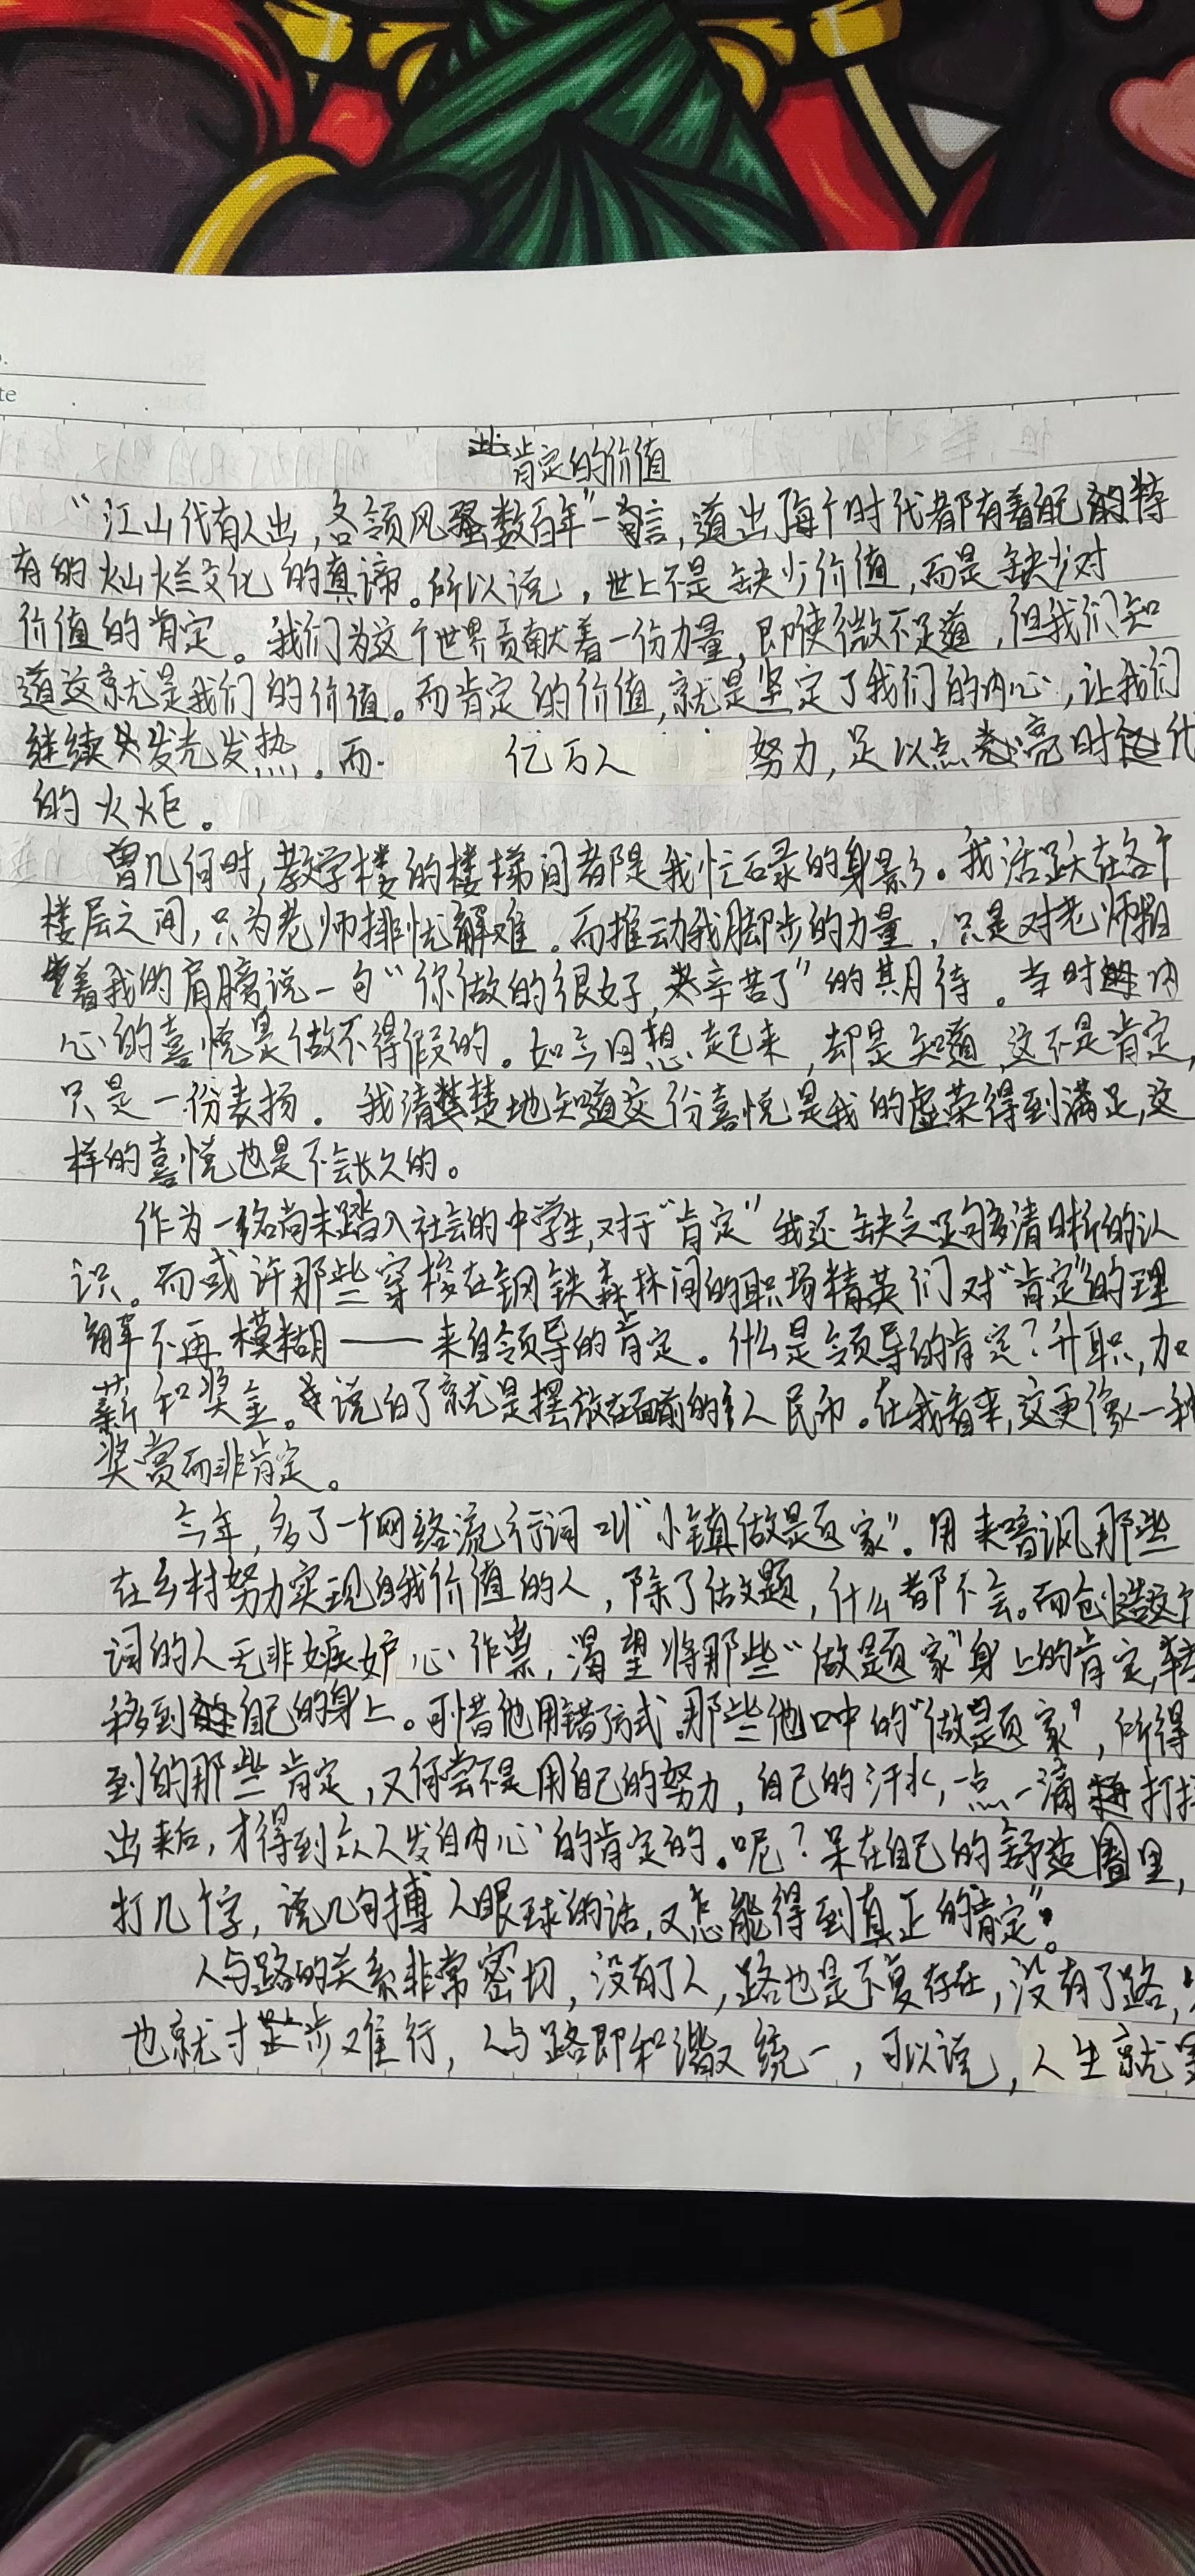 te
肯定的价值
“江山代有人出,各领风骚数百年”一言,道出每个时代都有着自己的特
有的灿烂文化的真谛。所以说,世上不是缺少价值,而是缺少对
价值的肯定。我们为这个世界贡献着一份力量,即使微不足道,但我们知
道这就是我们的价值。而肯定的价值,就是坚定了我们的内心,让我们
继续发光发热。而 亿万人 努力,足以点亮时代
的火炬。
曾几何时,教学楼的楼梯间都是我忙碌的身影。我活跃在各个
楼层之间,只为老师排忧解难。而推动我脚步的力量,只是对老师
着我的肩膀说一句“你做的很好,辛苦了”的期待。当时内
心的喜悦是做不得假的。如今回想起来,却是知道,这不是肯定,
只是一份表扬。我清楚地知道这份喜悦是我的虚荣得到满足,这
样的喜悦也是不会长久的。
作为一名尚未踏入社会的中学生,对于“肯定”我还缺乏足够多清晰的认
识。而或许那些穿梭在钢铁森林间的职场精英们对“肯定”的理
解不再模糊——来自领导的肯定。什么是领导的肯定?升职,加
薪和奖金。说白了就是摆放在面前的人民币。在我看来,这更像一种
奖赏而非肯定。
今年,多了一个网络流行词叫“小镇做题家”。用来暗讽那些
在乡村努力实现自我价值的人,除了做题,什么都不会。而创造这个
词的人无非嫉妒心作祟,渴望将那些“做题家”身上的肯定,转
移到自己的身上。可惜他用错了方式。那些他口中的“做题家”,所得
到的那些肯定,又何尝不是用自己的努力,自己的汗水,一点一滴打拼
出来后,才得到众人发自内心的肯定的。呢?呆在自己的舒适圈里,
打几个字,说几句搏人眼球的话,又怎能得到真正的“肯定”。
人与路的关系非常密切,没有了人,路也是不复存在,没有了路,
也就寸步难行,人与路即和谐又统一,可以说,人生就是